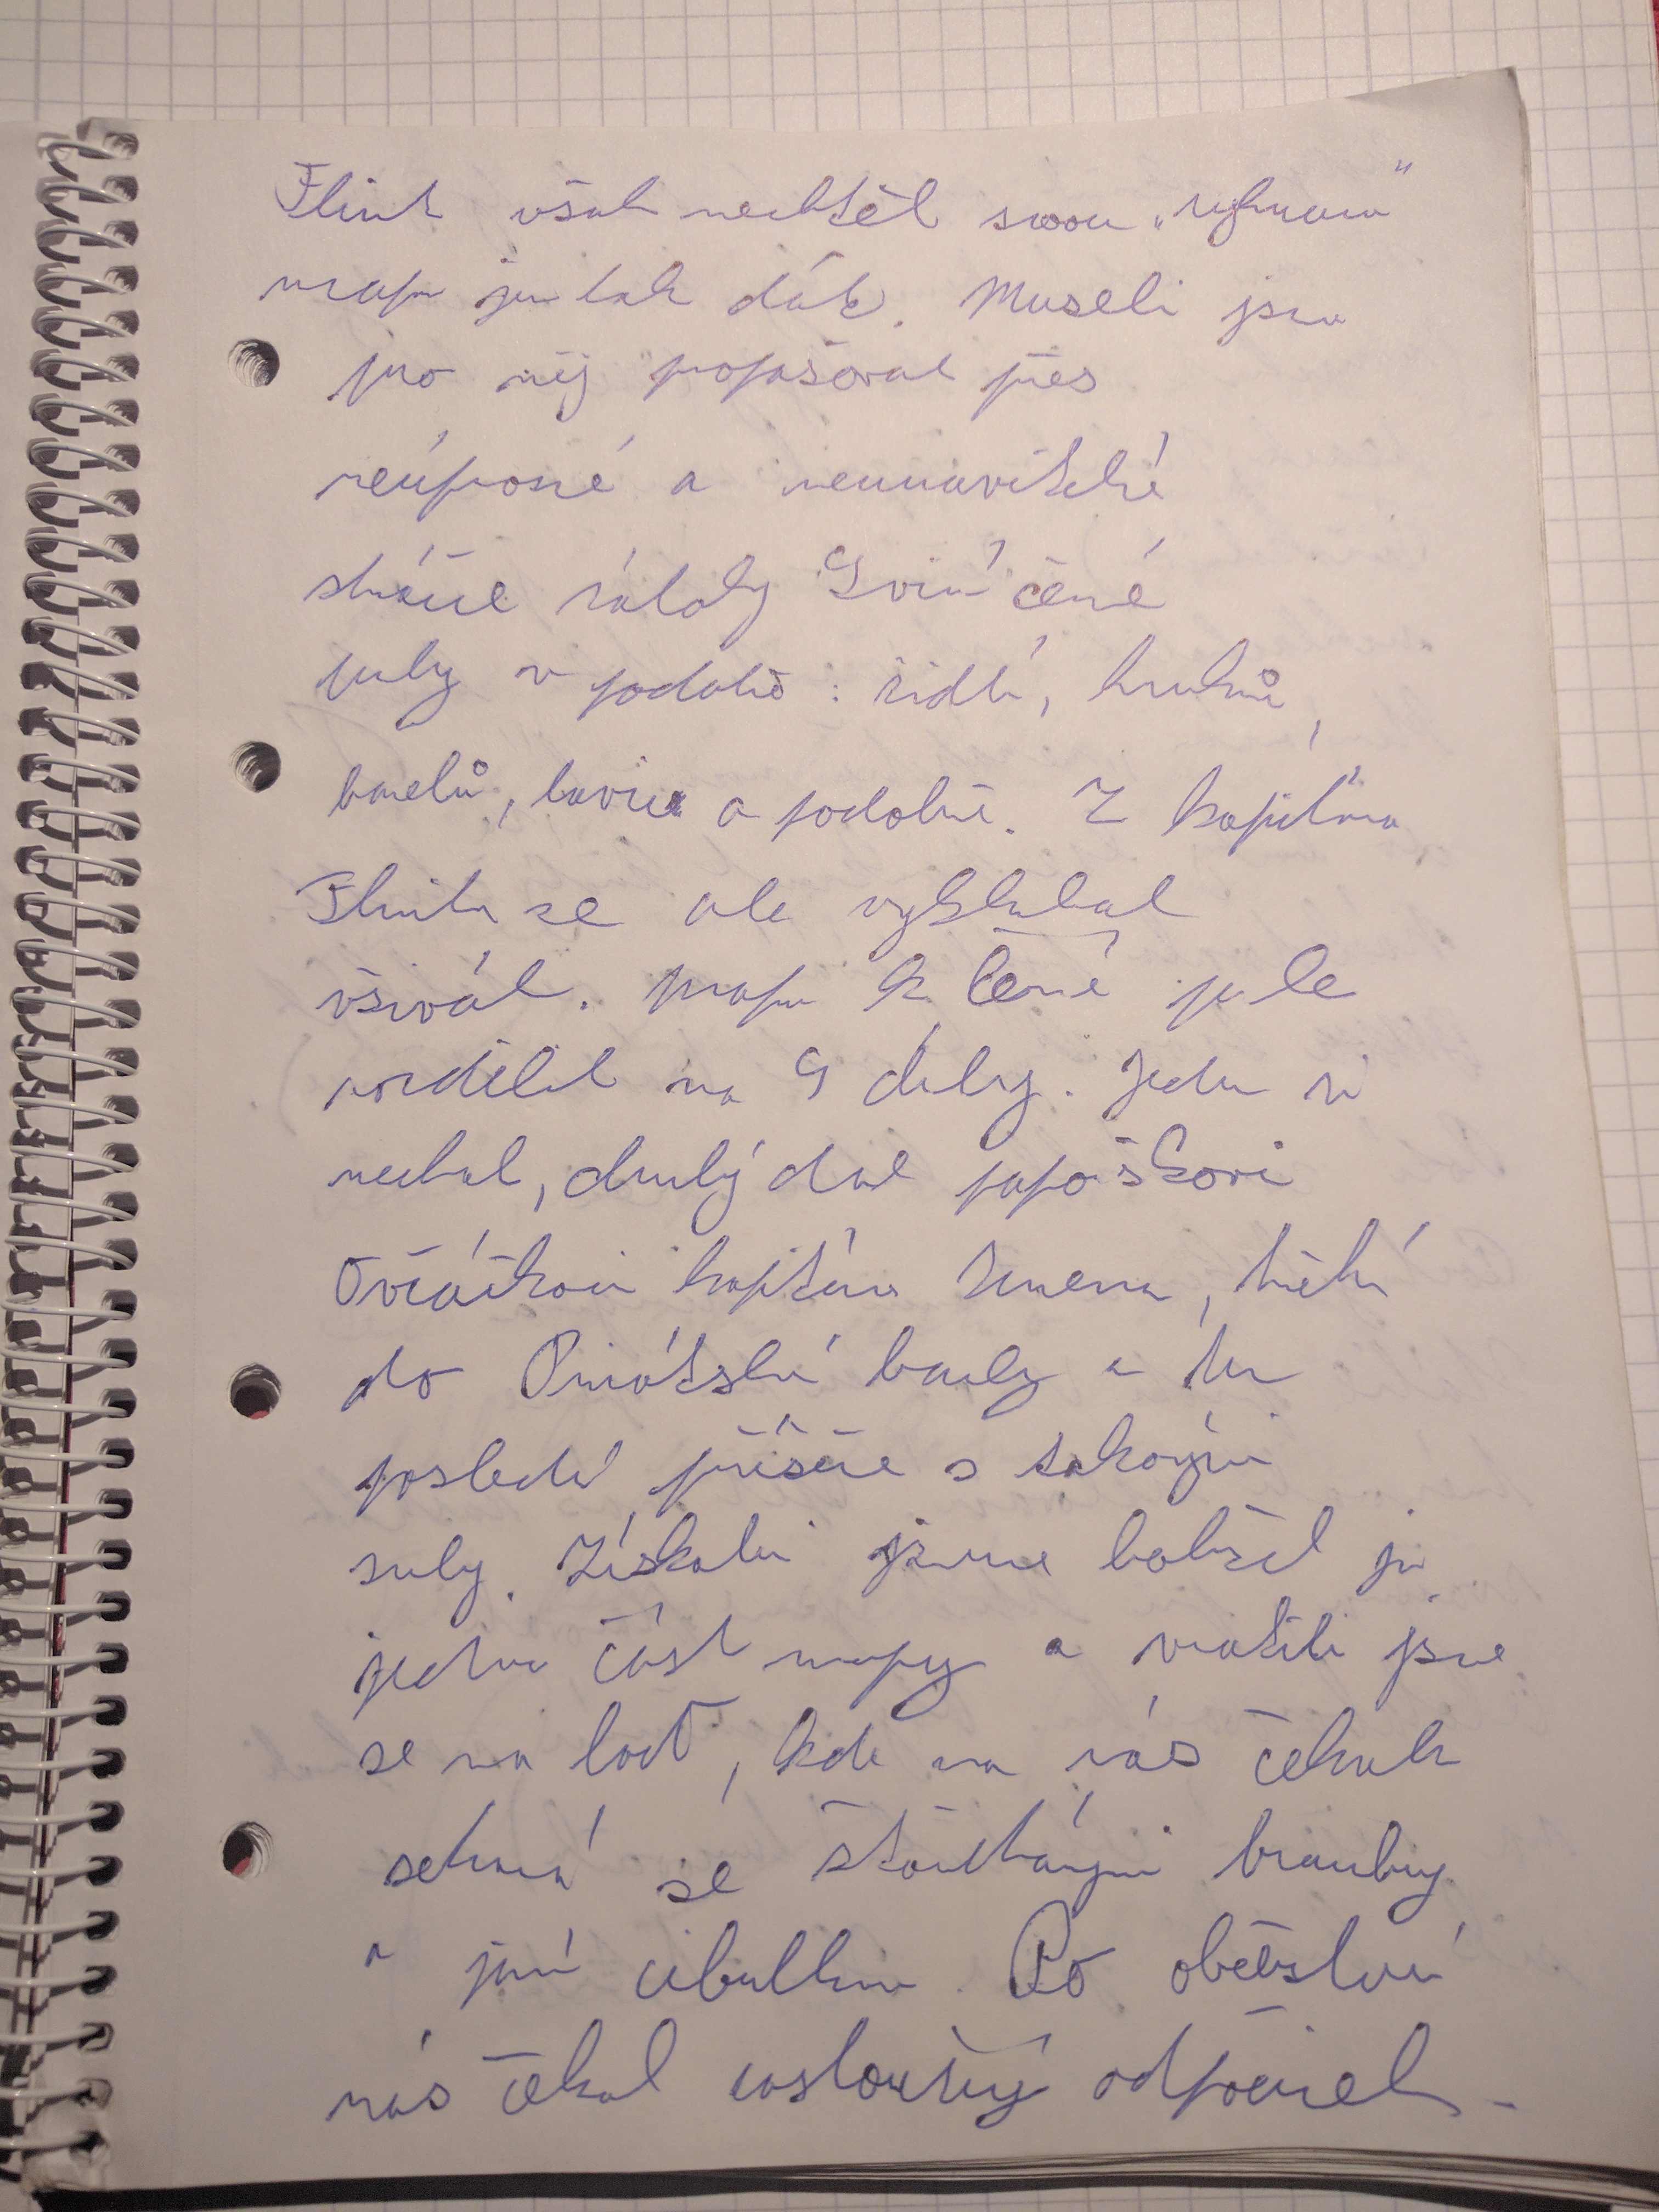 Flint však nechtěl svou „vyhranou"
mapu jen tak dát. Museli jsme
pro něj propašovat přes
neúprosné a neunavitelné
strážce zátoky Sviní čené
perly v podobě: židlí, hrnků,
barelů, lavice a podobně. Z kapitána
Flinta se ale vyklubal
všivák. Mapu k Černé perle
rozdělil na 4 díly. Jeden si
nechal, druhý dal papouškovi
Ovčáčkovi kapitána, třetí
do Pirátské bandy a
poslední příšeře s takovými
zuby. Získali jsme bohužel jen
jednu část mapy a vrátili jsme
se na loď, kde na nás čekala
sekaná se šťouchanými brambory
a jarní cibulkou. Po občerstvení
nás čekal zasloužený odpočinek.